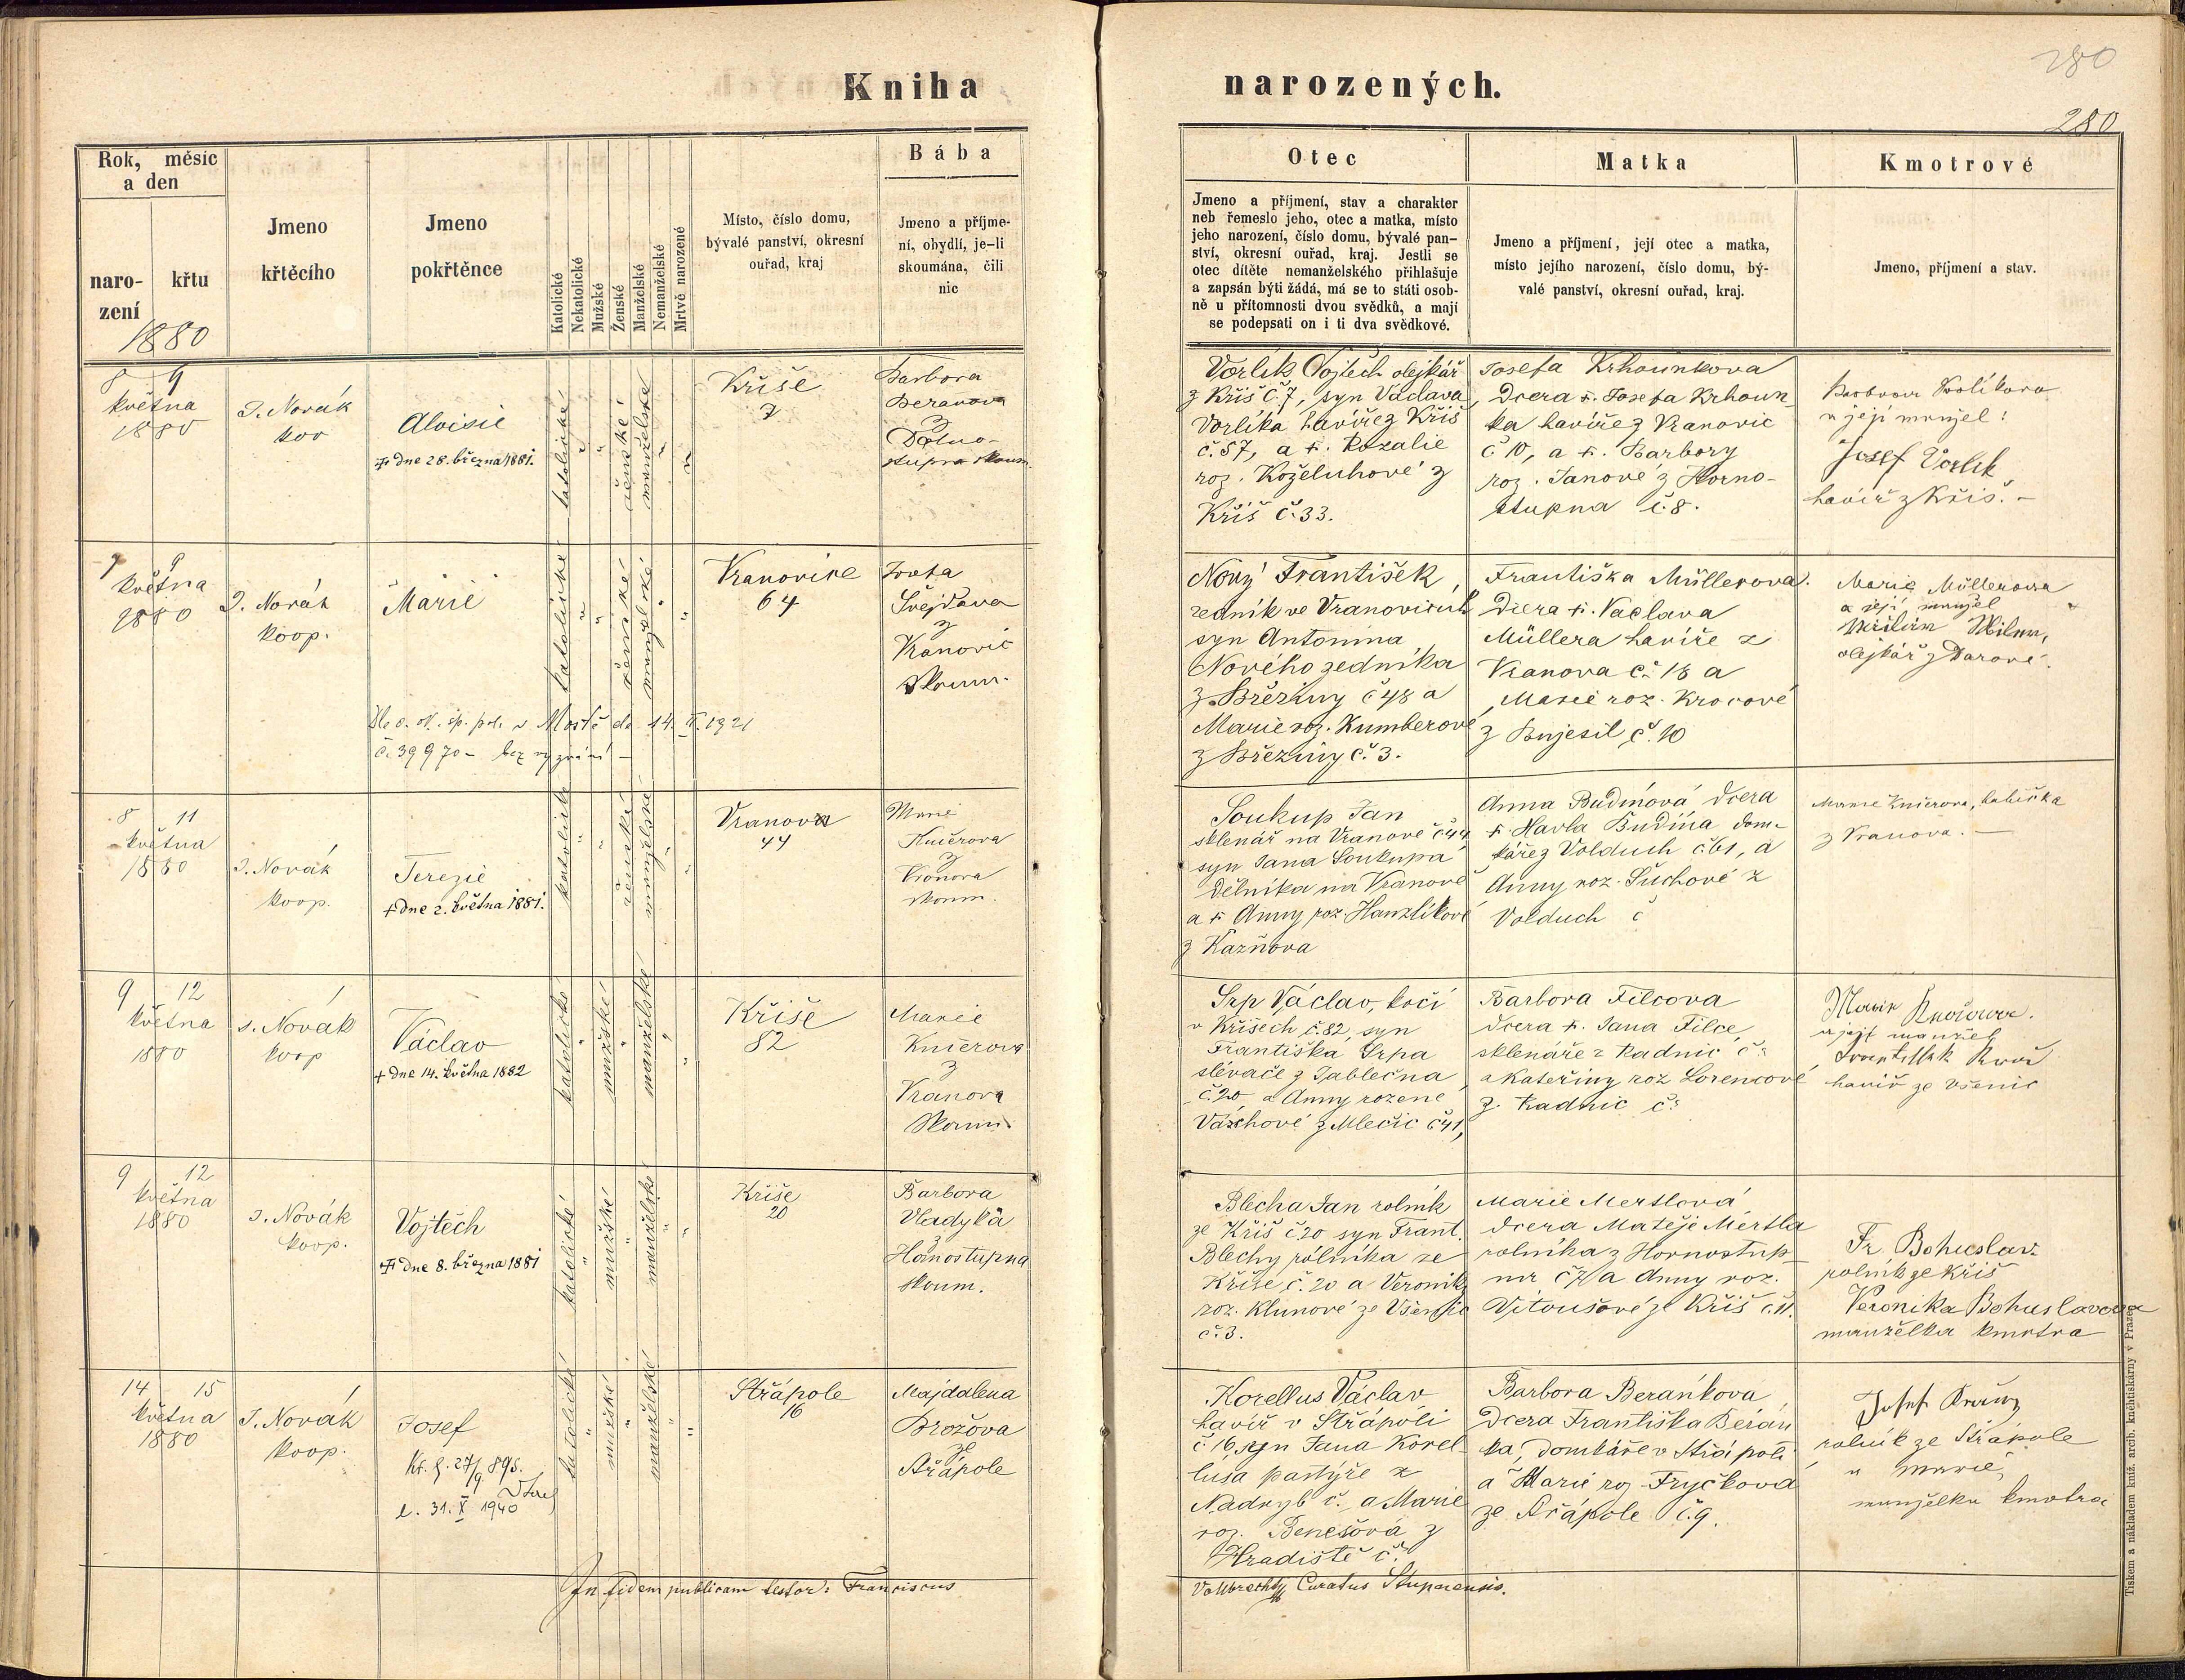 280
Kniha narozených.
280
Rok, měsíc
a den
naro-
zení
křtu
1880
Jmeno
křtěcího
Jmeno
pokřtěnce
Katolické
Nekatolické
Mužské
Ženské
Manželské
Nemanželské
Mrtvě narozené
Místo, číslo domu,
bývalé panství, okresní
ouřad, kraj
Bába
Jmeno a příjme-
ní, obydlí, je-li
skoumána, čili
nic
Otec
Jmeno a příjmení, stav a charakter
neb řemeslo jeho, otec a matka, místo
jeho narození, číslo domu, bývalé pan-
ství, okresní ouřad, kraj. Jestli se
otec dítěte nemanželského přihlašuje
a zapsán býti žádá, má se to státi osob-
ně u přítomnosti dvou svědků, a mají
se podepsati on i ti dva svědkové.
Matka
Jmeno a příjmení, její otec a matka,
místo jejího narození, číslo domu, bý-
valé panství, okresní ouřad, kraj.
Kmotrové
Jmeno, příjmení a stav.
8 9
května
1880
J. Novák
Aloisie
† dne 28. března 1881.
katolické
ženské
manželské
Kříše
7
Barbora
Beranova
z
skoum.
Vorlík Vojtěch olejkář
z Kříš č. 7, syn Václava
Vorlíka havíře z Kříš
č. 57, a †. Rozalie
roz. Koželuhové z
Kříš č. 33.
Josefa Krhounkova
Dcera †. Josefa Krhoun-
ka havíře z Vranovic
č 10, a †. Barbory
roz. Janové z Horno-
stupna č. 8.
a její manžel:
Josef Vorlík
havíř z Kříš. –
9
května
1880
J. Novák
koop.
Marie
katolické
ženské
manželské
Vranovice
64
Švejdova
z
Vranovic
skoum.
v Mostě do 14. II. 1921
č. 39970 – bez vyznání –
Nový František,
zedník ve Vranovicích
syn Antonina
Nového zedníka
z Březiny č 48 a
Marie roz. Kumberové
z Březiny č. 3.
Františka Müllerova.
Dcera †. Vaclava
Müllera havíře z
Vranova č. 18 a
Marie roz. Krocové
z Bujesil č. 10
Marie Müllerova
a její manžel
olejkář z Darové.
8 11
května
1880
J. Novák
koop.
Terezie
† dne 2. května 1881.
katolické
ženské
manželské
Vranova
44
Marie
Kučerova
z
Vranova
skoum.
Soukup Jan
sklenář na Vranově č 44
syn Jana Soukupa
Dělníka na Vranově
a † Anny roz. Hanzlíkové
z Kazňova
Anna Budínová Dcera
†. Havla Budína dom-
káře z Volduch č. 61, a
Anny roz. Suchové z
Volduch č
Marie Kučerova, babička
z Vranova. –
9 12
května
1880
J. Novák
koop
Václav
† dne 14. května 1882
katolické
mužské
manželské
Kříše
82
Marie
Kučerova
z
Vranova
skoum.
Srp Václav, kočí
v Kříších č. 82, syn
Františka Srpa
slévače z Jablečna
č. 20 a Anny rozene
z Mlečic č 41,
Barbora Filcova
Dcera †. Jana Filce,
sklenáře z Radnic č.
a Kateřiny roz Lorencové
z. Radnic č.
a její manžel
havíř ze Všenic
9 12
května
1880
J. Novák
koop.
Vojtěch
† dne 8. března 1881
katolické
mužské
manželské
Kříše
20
Barbora
Vladyka
z
Hornostupna
skoum.
Blecha Jan rolník
ze Kříš č 20 syn Frant.
Blechy rolníka ze
Kříše č. 20 a Veroniky
roz. Klunové ze Všenic
č. 3.
Marie Mertlová
Dcera Matěje Mertla
rolníka z Hornostup-
na č 7 a Anny roz.
Vitoušové ze Kříš č. 11.
Fr. Bohuslav
rolník ze Kříš
Veronika Bohuslavova
manželka kmotra
14 15
května
1880
J. Novák
koop.
Josef
l. 31. X 1940
katolické
mužské
manželské
Střápole
16
Majdalena
Brožova
ze
Střápole
Korellus Václav
havíř v Střápoli
č 16, syn Jana Korel-
lusa pastýře z
Nadryb č. a Marie
roz. Benešová z
Hradiště č.
Barbora Beránkova
Dcera Františka Berán
ka, Domkáře v Střápoli
a Marie roz. Fryčková
ze Střápole č. 9.
Josef
rolník ze Střápole
a Marie,
manželka kmotra
In fidem publicam testor: Franciscus Vollbrecht, Curatus Stupnensis.
Tiskem a nákladem kniž. arcib. knehtiskárny v Praze.